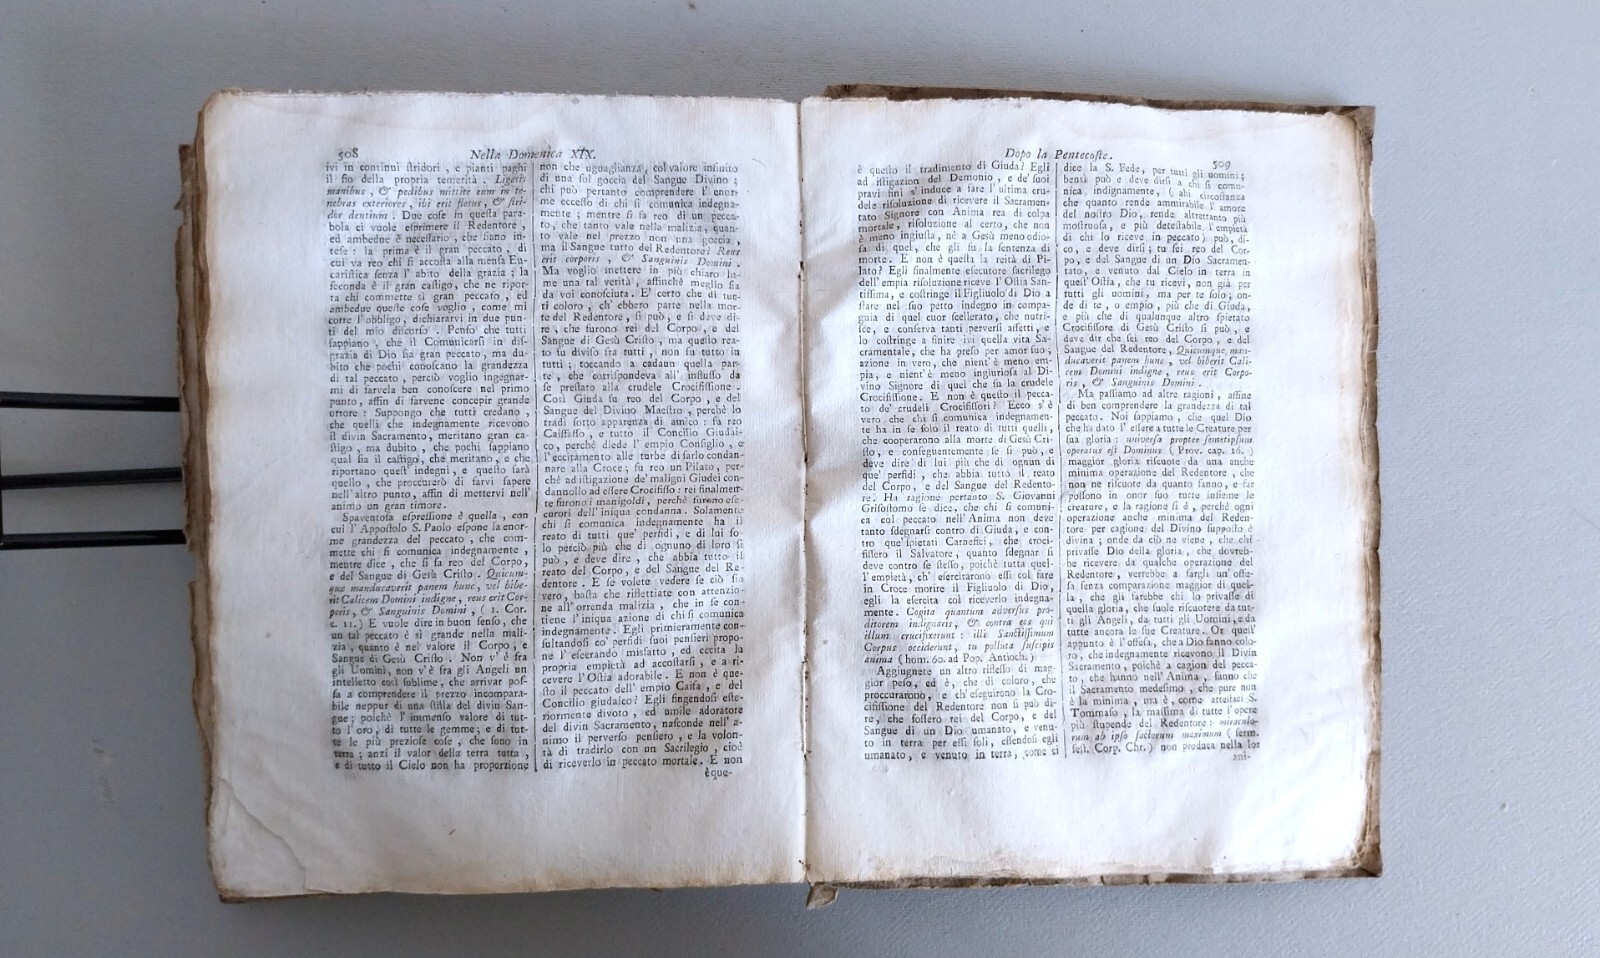 508
Nella Domenica XIX.
ivi in continui ſtridori , e pianti paghi
il fio della propria temerità . Ligatis
manibus , & pedibus mittite eum in te-
nebras exteriores , ibi erit fletus , & ſtri-
dor dentium . Due coſe in queſta para-
bola ci vuole eſprimere il Redentore ,
ed ambedue è neceſſario , che ſiano in-
teſe : la prima è il gran peccato , di
cui va reo chi ſi accoſta alla menſa Eu-
cariſtica ſenza l' abito della grazia ; la
ſeconda è il gran caſtigo , che ne ripor-
ta chi commette sì gran peccato , ed
ambedue queſte coſe voglio , come mi
corre l' obbligo , dichiararvi in due pun-
ti del mio diſcorſo . Penſo che tutti
ſappiano , che il Comunicarſi in diſ-
grazia di Dio ſia gran peccato , ma du-
bito che pochi conoſcano la grandezza
di tal peccato , perciò voglio ingegnar-
mi di farvela ben conoſcere nel primo
punto , affin di farvene concepir grande
orrore : Suppongo che tutti credano ,
che quelli che indegnamente ricevono
il divin Sacramento , meritano gran ca-
ſtigo , ma dubito , che pochi ſappiano
qual ſia il caſtigo , che meritano , e che
riportano queſt' indegni , e queſto ſarà
quello , che proccurerò di farvi ſapere
nell' altro punto , affin di mettervi nell'
animo un gran timore .
Spaventoſa eſpreſſione è quella , con
cui l' Appoſtolo S. Paolo eſpone la enor-
me grandezza del peccato , che com-
mette chi ſi comunica indegnamente ,
mentre dice , che ſi fa reo del Corpo ,
e del Sangue di Gesù Criſto . Quicum-
que manducaverit panem hunc , vel bibe-
rit Calicem Domini indigne , reus erit Cor-
poris , & Sanguinis Domini , ( 1. Cor.
c. 11. ) E vuole dire in buon ſenſo , che
un tal peccato è sì grande nella mali-
zia , quanto è nel valore il Corpo , e
Sangue di Gesù Criſto . Non v' è fra
gli Uomini , non v' è fra gli Angeli un
intelletto così ſublime , che arrivar poſ-
ſa a comprendere il prezzo incompara-
bile neppur di una ſtilla del divin San-
gue ; poichè l' immenſo valore di tut-
to l' oro , di tutte le gemme ; e di tut-
te le più prezioſe coſe , che ſono in
terra ; anzi il valor della terra tutta ,
e di tutto il Cielo non ha proporzione
non che uguaglianza , col valore infinito
di una ſol goccia del Sangue Divino ;
chi può pertanto comprendere l' enor-
me ecceſſo di chi ſi comunica indegna-
mente ; mentre ſi fa reo di un pecca-
to , che tanto vale nella malizia , quan-
to vale nel prezzo non una goccia ,
ma il Sangue tutto del Redentore ? Reus
erit corporis , & Sanguinis Domini .
Ma voglio mettere in più chiaro lu-
me una tal verità , affinchè meglio ſia
da voi conoſciuta . E' certo che di tut-
ti coloro , ch' ebbero parte nella mor-
te del Redentore , ſi può , e ſi deve di-
re , che furono rei del Corpo , e del
Sangue di Gesù Criſto , ma queſto rea-
to fu diviſo fra tutti , non fu tutto in
tutti ; toccando a cadaun quella par-
te , che corriſpondeva all' influſſo da
ſe preſtato alla crudele Crocifiſſione .
Così Giuda fu reo del Corpo , e del
Sangue del Divino Maeſtro , perchè lo
tradì ſotto apparenza di amico : fu reo
Caiffaſſo , e tutto il Concilio Giudai-
co , perchè diede l' empio Conſiglio , e
l' eccitamento alle turbe di farlo condan-
nare alla Croce ; fu reo un Pilato , per-
chè ad iſtigazione de' maligni Giudei con-
dannollo ad eſſere Crocifiſſo : rei finalmen-
te furono i manigoldi , perchè furono eſe-
cutori dell' iniqua condanna . Solamente
chi ſi comunica indegnamente ha il
reato di tutti que' perfidi , e di lui ſo-
lo perciò più che di ognuno di loro ſi
può , e deve dire , che abbia tutto il
reato del Corpo , e del Sangue del Re-
dentore . E ſe volete vedere ſe ciò ſia
vero , baſta che riflettiate con attenzio-
ne all' orrenda malizia , che in ſe con-
tiene l' iniqua azione di chi ſi comunica
indegnamente . Egli primieramente con-
ſultandoſi co' perfidi ſuoi penſieri propo-
ne l' eſcerando misfatto , ed eccita la
propria empietà ad accoſtarſi , e a ri-
cevere l' Oſtia adorabile . E non è que-
ſto il peccato dell' empio Caifa , e del
Concilio giudaico ? Egli fingendoſi eſte-
riormente divoto , ed umile adoratore
del divin Sacramento , naſconde nell' a-
nimo il perverſo penſiero , e la volon-
tà di tradirlo con un Sacrilegio , cioè
di riceverlo in peccato mortale . E non
è que-
Dopo la Pentecoſte.
509
è queſto il tradimento di Giuda ? Egli
ad iſtigazion del Demonio , e de' ſuoi
pravi fini s' induce a fare l' ultima cru-
dele riſoluzione di ricevere il Sacramen-
tato Signore con Anima rea di colpa
mortale , riſoluzione al certo , che non
è meno ingiuſta , nè a Gesù meno odio-
ſa di quel , che gli fu la ſentenza di
morte . E non è queſta la reità di Pi-
lato ? Egli finalmente eſecutore ſacrilego
dell' empia riſoluzione riceve l' Oſtia San-
tiſſima , e coſtringe il Figliuolo di Dio a
ſtare nel ſuo petto indegno in compa-
gnia di quel cuor ſcellerato , che nutri-
ſce , e conſerva tanti perverſi affetti , e
lo coſtringe a finire ivi quella vita Sa-
cramentale , che ha preſo per amor ſuo ;
azione in vero , che nient' è meno em-
pia , e nient' è meno ingiurioſa al Di-
vino Signore di quel che fu la crudele
Crocifiſſione . E non è queſto il pecca-
to de' crudeli Crocifiſſori ? Ecco s' è
vero che chi ſi comunica indegnamen-
te ha in ſe ſolo il reato di tutti quelli ,
che cooperarono alla morte di Gesù Cri-
ſto , e conſeguentemente ſe ſi può , e
deve dire di lui più che di ognun di
que' perfidi , che abbia tutto il reato
del Corpo , e del Sangue del Redento-
re . Ha ragione pertanto S. Giovanni
Griſoſtomo ſe dice , che chi ſi comuni-
ca col peccato nell' Anima non deve
tanto ſdegnarſi contro di Giuda , e con-
tro que' ſpietati Carnefici , che croci-
fiſſero il Salvatore , quanto ſdegnar ſi
deve contro ſe ſteſſo , poichè tutta quel-
l' empietà , ch' eſercitarono eſſi col fare
in Croce morire il Figliuolo di Dio ,
egli la eſercita col riceverlo indegna-
mente . Cogita quantum adverſus pro-
ditorem indignaris , & contra eos qui
illum crucifixerunt : illi Sanctiſſimum
Corpus occiderunt, tu polluta ſuſcipis
anima ( hom. 60. ad Pop. Antioch. )
Aggiugnete un altro rifleſſo di mag-
gior peſo , ed è , che di coloro , che
proccurarono , e ch' eſeguirono la Cro-
cifiſſione del Redentore non ſi può di-
re , che foſſero rei del Corpo , e del
Sangue di un Dio umanato , e venu-
to in terra per eſſi ſoli , eſſendoſi egli
umanato , e venuto in terra , come ci
dice la S. Fede, per tutti gli uomini ;
bensì può e deve dirſi a chi ſi comu-
nica indegnamente , ( ahi circoſtanza
che quanto rende ammirabile l' amore
del noſtro Dio , rende altrettanto più
moſtruoſa , e più deteſtabile l' empietà
di chi lo riceve in peccato ) può, di-
co , e deve dirſi ; tu ſei reo del Cor-
po , e del Sangue di un Dio Sacramen-
tato , e venuto dal Cielo in terra in
queſt' Oſtia , che tu ricevi, non già per
tutti gli uomini, ma per te ſolo ; on-
de di te , o empio , più che di Giuda ,
e più che di qualunque altro ſpietato
Crocifiſſore di Gesù Criſto ſi può , e
deve dir che ſei reo del Corpo , e del
Sangue del Redentore , Quicumque man-
ducaverit panem hunc , vel biberit Cali-
cem Domini indigne , reus erit Corpo-
ris , & Sanguinis Domini .
Ma paſſiamo ad altre ragioni , affine
di ben comprendere la grandezza di tal
peccato . Noi ſappiamo , che quel Dio
che ha dato l' eſſere a tutte le Creature per
ſua gloria : univerſa propter ſemetipſum
operatus eſt Dominus ( Prov. cap. 16. )
maggior gloria riſcuote da una anche
minima operazione del Redentore , che
non ne riſcuote da quanto fanno , e far
poſſono in onor ſuo tutte inſieme le
creature , e la ragione ſi è , perchè ogni
operazione anche minima del Reden-
tore per cagione del Divino ſuppoſto è
divina ; onde da ciò ne viene , che chi
privaſſe Dio della gloria , che dovreb-
be ricevere da qualche operazione del
Redentore , verrebbe a fargli un' offe-
ſa ſenza comparazione maggior di quel-
la , che gli farebbe chi lo privaſſe di
quella gloria, che ſuole riſcuotere da tut-
ti gli Angeli, da tutti gli Uomini, e da
tutte ancora le ſue Creature . Or queſt'
appunto è l' offeſa , che a Dio fanno colo-
ro , che indegnamente ricevono il Divin
Sacramento , poichè a cagion del pecca-
to , che hanno nell' Anima , fanno che
il Sacramento medeſimo , che pure non
è la minima , ma è , come atteſtaci S.
Tommaſo , la maſſima di tutte l' opere
più ſtupende del Redentore : miraculo-
rum ab ipſo factorum maximum ( ſerm.
feſt. Corp. Chr. ) non produca nella lor
ani-